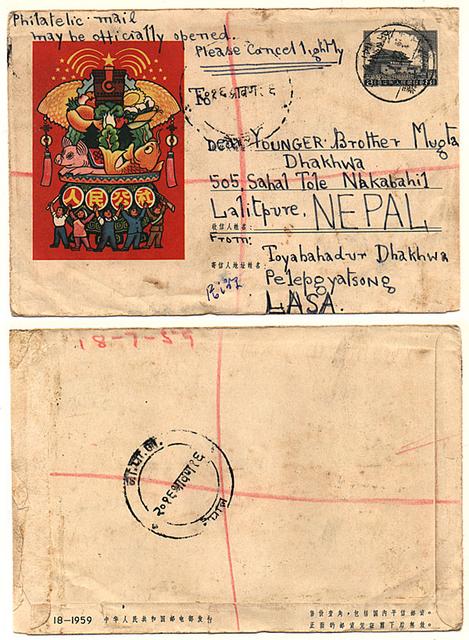 Philatelic mail
may be officially opened.
Please Cancel lightly
२०१६श्रावण१६
Dear YOUNGER Brother Mugta
Dhakhwa
505, Sahal Tole Nakabahil
Lalitpure, NEPAL
收信人姓名:
From:
Toyabahadur Dhakhwa
寄信人地址姓名:
Pelepgyatsong
LASA.
人民公社
18-7-59
ला.पा.ज.
२०१६श्रावण१६
18-1959 中华人民共和国邮电部发行